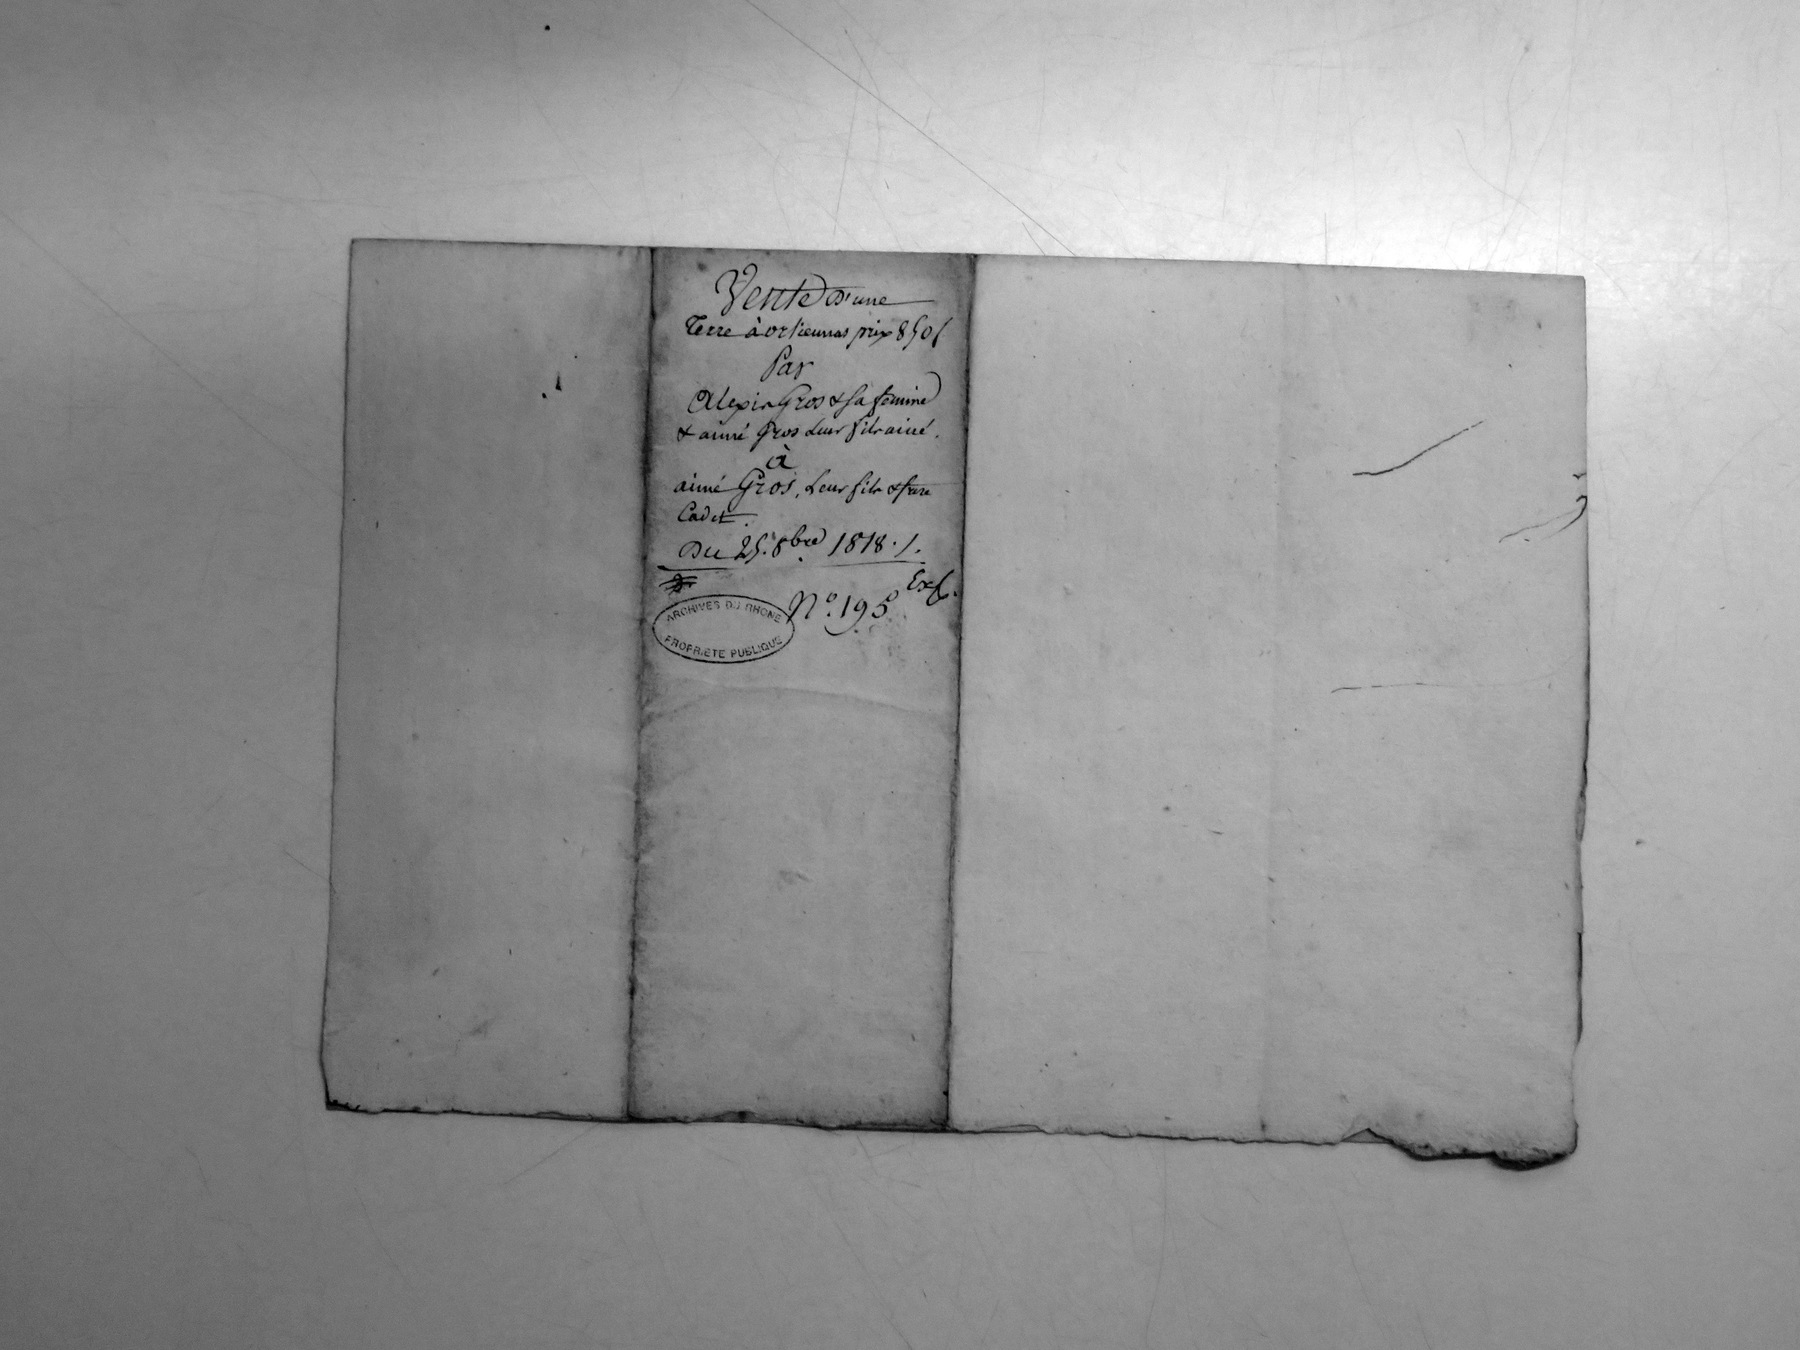 Vente d'une
Terre à orliennas prix 850f
Par
Alexis Gros & sa femme
& aimé Gros Leur fils ainé.
à
aimé Gros, Leur fils & frere
Cadet.
Du 25. 8bre 1818.
Exp.
N°. 195
ARCHIVES DU RHONE
PROPRIETE PUBLIQUE